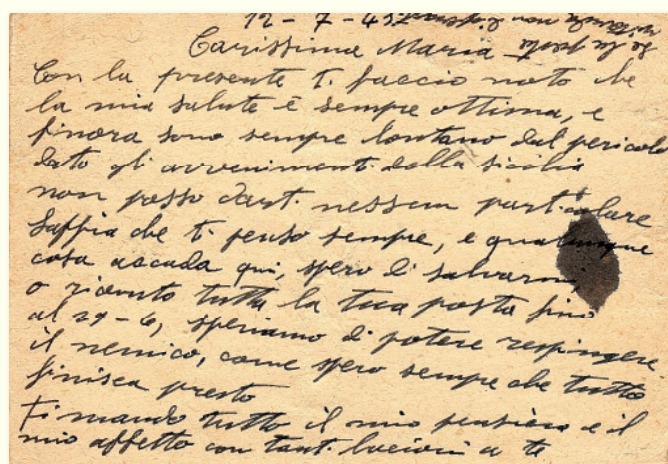 12 - 7 - 43
Carissima Maria
Con la presente ti faccio noto che
la mia salute è sempre ottima, e
finora sono sempre lontano dal pericolo
dato gli avvenimenti della sicilia
non posso darti nessun particolare
Sappia che ti penso sempre, e qualunque
cosa accada qui, spero di salvarmi,
o ricevuto tutta la tua posta fino
al 29-6, speriamo di potere respingere
il nemico, come spero sempre che tutto
finisca presto
Ti mando tutto il mio pensiero e il
mio affetto con tanti bacioni a te